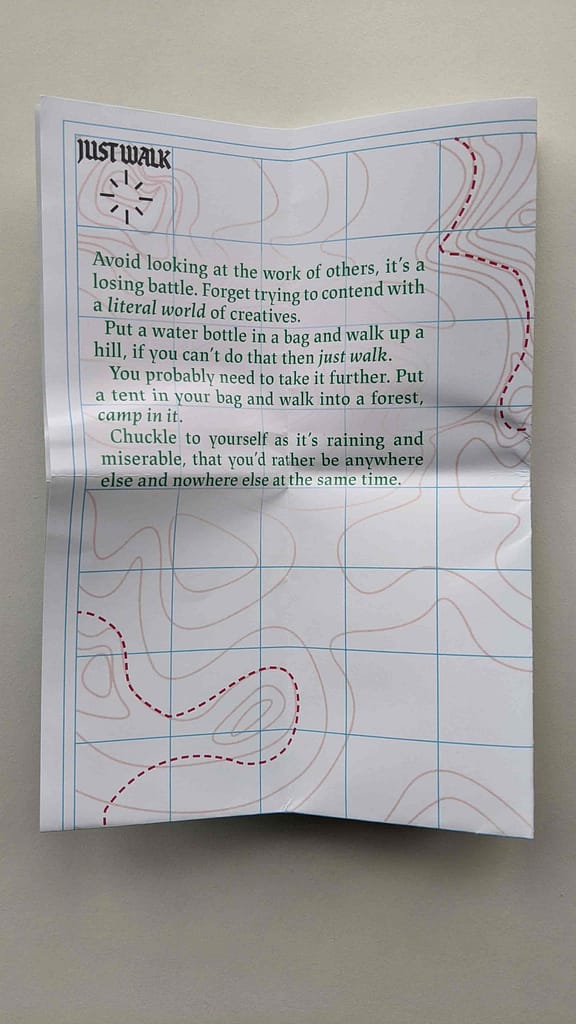 JUST WALK
Avoid looking at the work of others, it's a
losing battle. Forget trying to contend with
a literal world of creatives.
Put a water bottle in a bag and walk up a
hill, if you can't do that then just walk.
You probably need to take it further. Put
a tent in your bag and walk into a forest,
camp in it.
Chuckle to yourself as it's raining and
miserable, that you'd rather be anywhere
else and nowhere else at the same time.